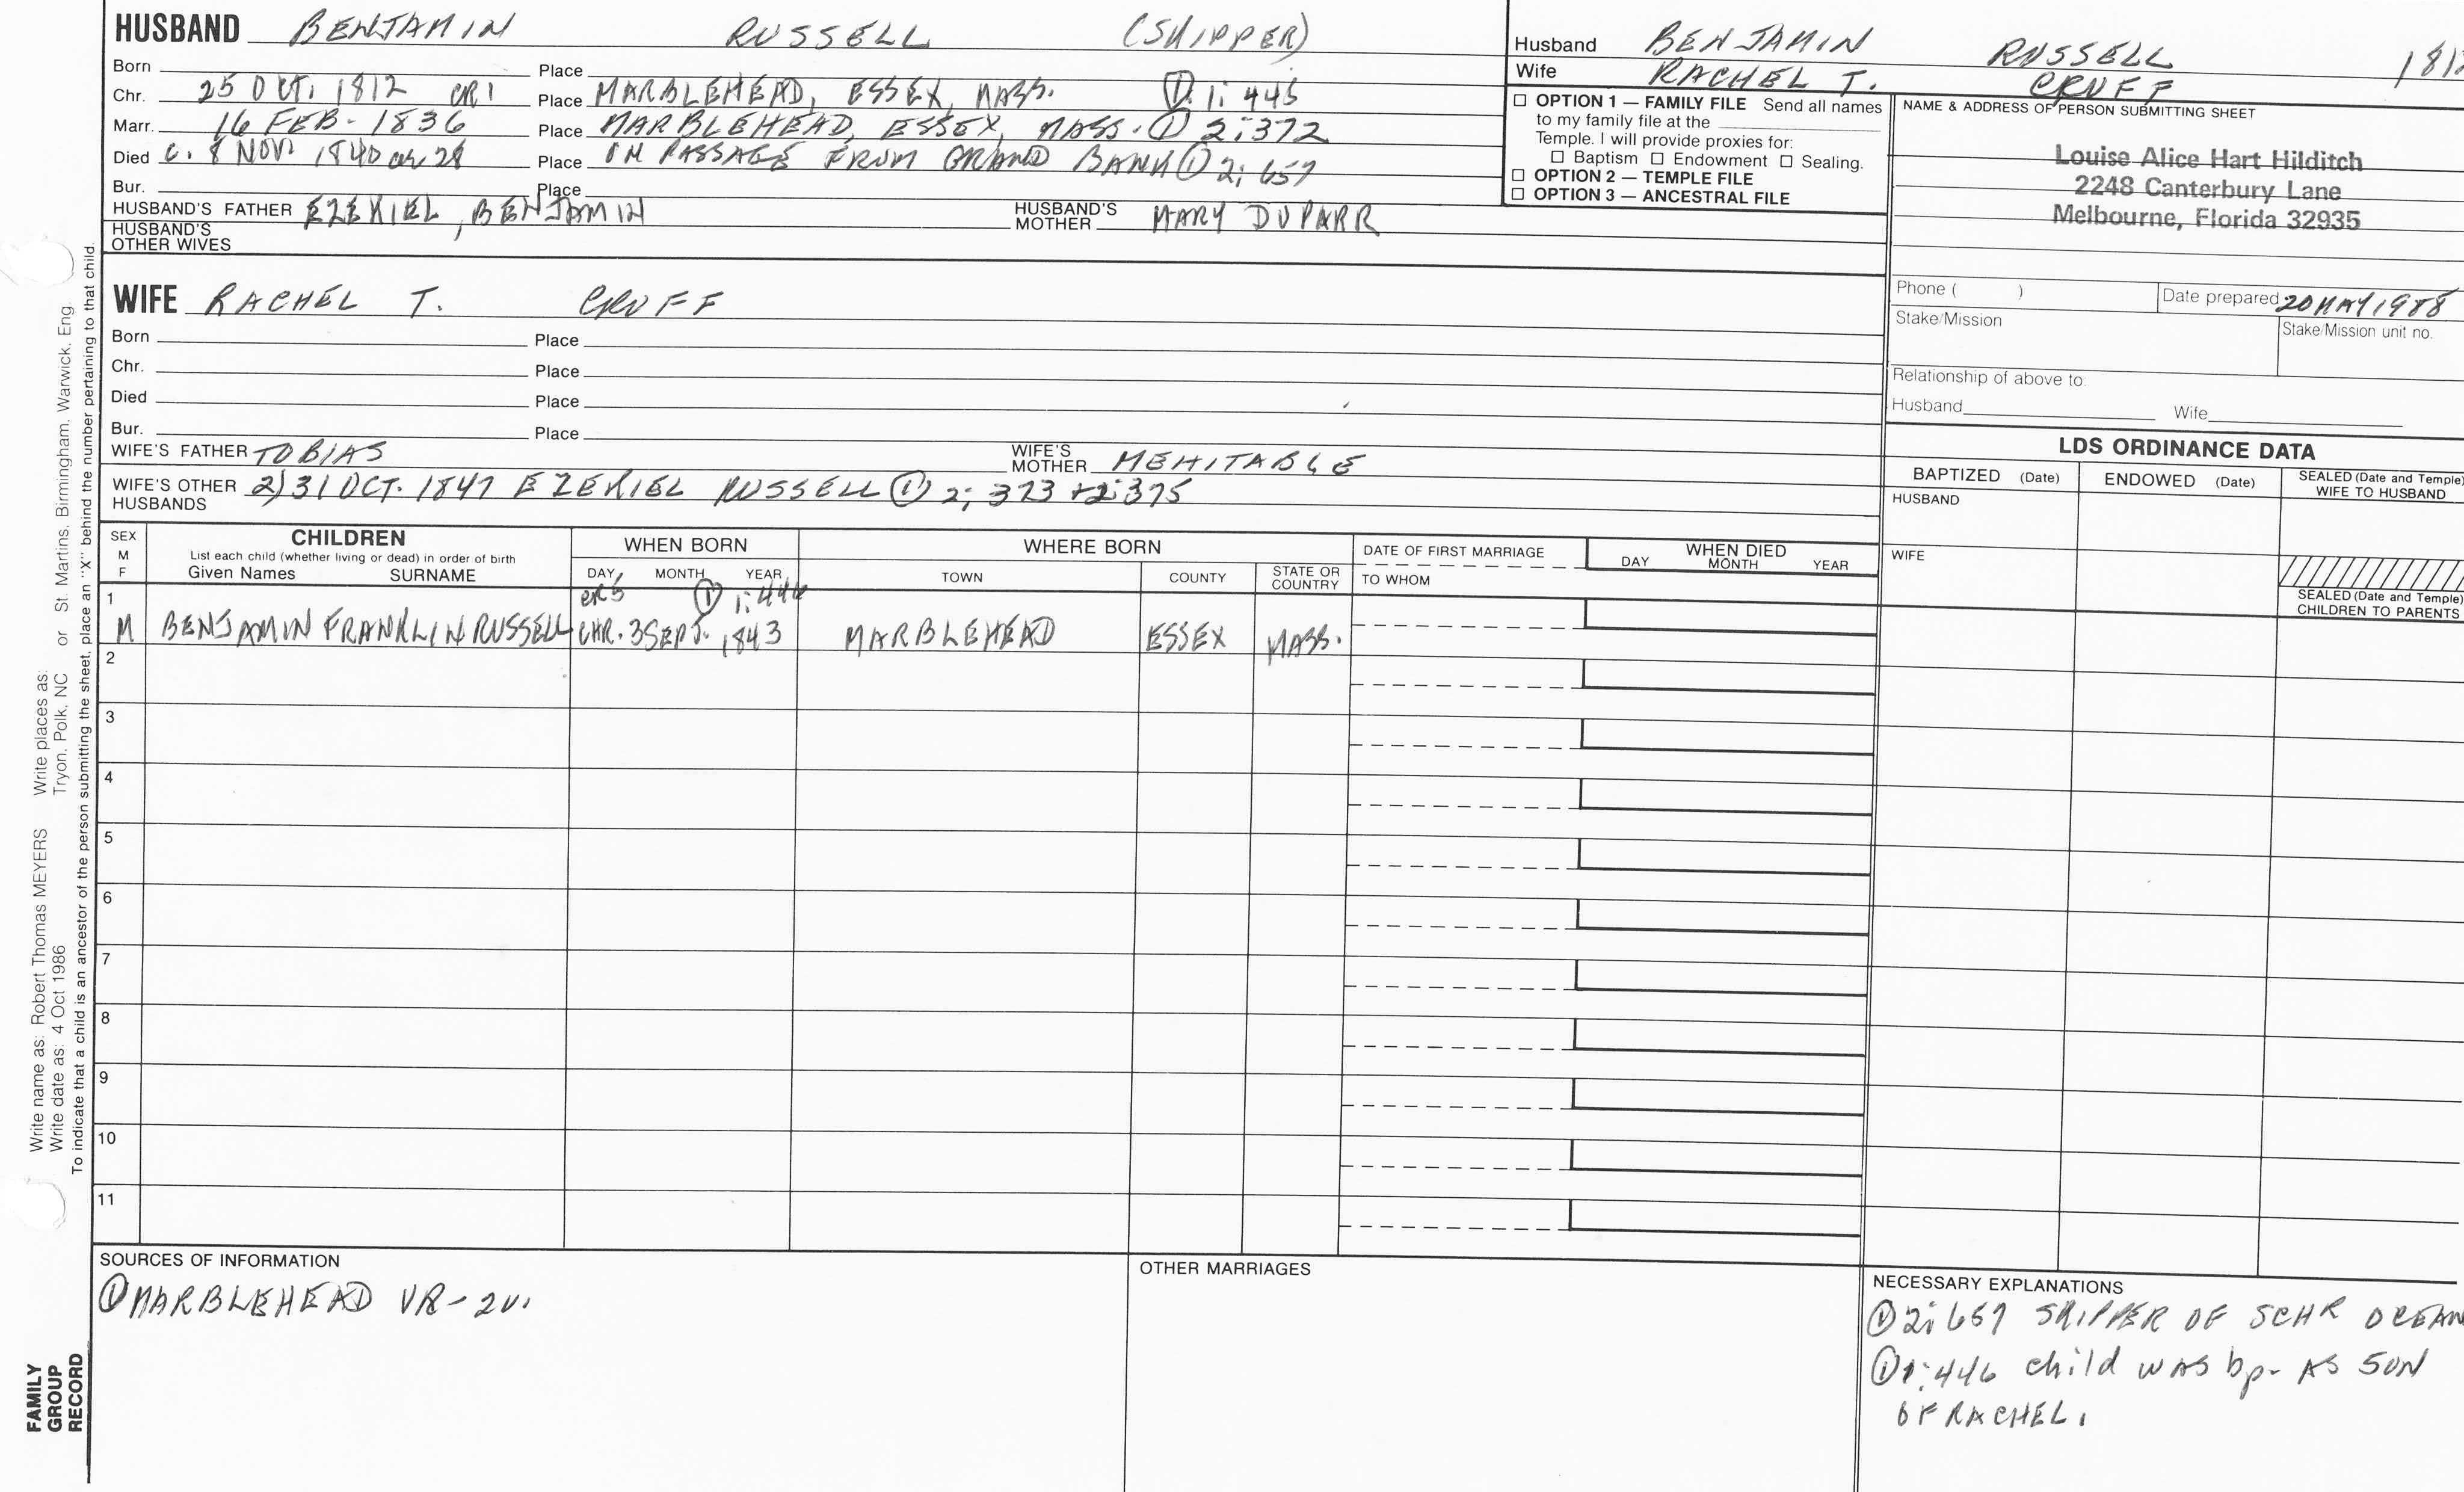 HUSBAND BENJAMIN RUSSELL (SKIPPER)
Born Place
Chr. 25 OCT. 1812 CR1 Place MARBLEHEAD, ESSEX, MASS. ① 1:445
Marr. 16 FEB. 1836 Place MARBLEHEAD, ESSEX, MASS. ① 2:372
Died c. 8 NOV. 1840 ae 28 Place ON PASSAGE FROM GRAND BANK ① 2:657
Bur. Place
HUSBAND'S FATHER EZEKIEL, BENJAMIN HUSBAND'S MOTHER MARY DUPARR
HUSBAND'S OTHER WIVES
Husband BENJAMIN RUSSELL 181
Wife RACHEL T. CRUFF
☐ OPTION 1 — FAMILY FILE Send all names
to my family file at the
Temple. I will provide proxies for:
☐ Baptism ☐ Endowment ☐ Sealing.
☐ OPTION 2 — TEMPLE FILE
☐ OPTION 3 — ANCESTRAL FILE
NAME & ADDRESS OF PERSON SUBMITTING SHEET
Louise Alice Hart Hilditch
2248 Canterbury Lane
Melbourne, Florida 32935
Phone ( ) Date prepared 20 MAY 1988
Stake/Mission Stake/Mission unit no.
Relationship of above to:
Husband Wife
WIFE RACHEL T. CRUFF
Born Place
Chr. Place
Died Place
Bur. Place
WIFE'S FATHER TOBIAS WIFE'S MOTHER MEHITABLE
WIFE'S OTHER HUSBANDS 2) 31 OCT. 1847 EZEKIEL RUSSELL ① 2:373 + 2:375
LDS ORDINANCE DATA
BAPTIZED (Date) ENDOWED (Date) SEALED (Date and Temple) WIFE TO HUSBAND
HUSBAND
WIFE
SEALED (Date and Temple) CHILDREN TO PARENTS
SEX M F
CHILDREN
List each child (whether living or dead) in order of birth
Given Names SURNAME
WHEN BORN
DAY MONTH YEAR
WHERE BORN
TOWN COUNTY STATE OR COUNTRY
DATE OF FIRST MARRIAGE
TO WHOM
WHEN DIED
DAY MONTH YEAR
1 CR5 ① 1:446
M BENJAMIN FRANKLIN RUSSELL CHR. 3 SEPT. 1843 MARBLEHEAD ESSEX MASS.
2
3
4
5
6
7
8
9
10
11
SOURCES OF INFORMATION
① MARBLEHEAD VR - 2v.
OTHER MARRIAGES
NECESSARY EXPLANATIONS
① 2:657 SKIPPER OF SCHR OCEAN
① 1:446 child WAS bp. AS SON
OF RACHEL.
Write name as: Robert Thomas MEYERS Write places as:
Write date as: 4 Oct 1986 Tryon, Polk, NC or St. Martins, Birmingham, Warwick, Eng.
To indicate that a child is an ancestor of the person submitting the sheet, place an "X" behind the number pertaining to that child.
FAMILY
GROUP
RECORD